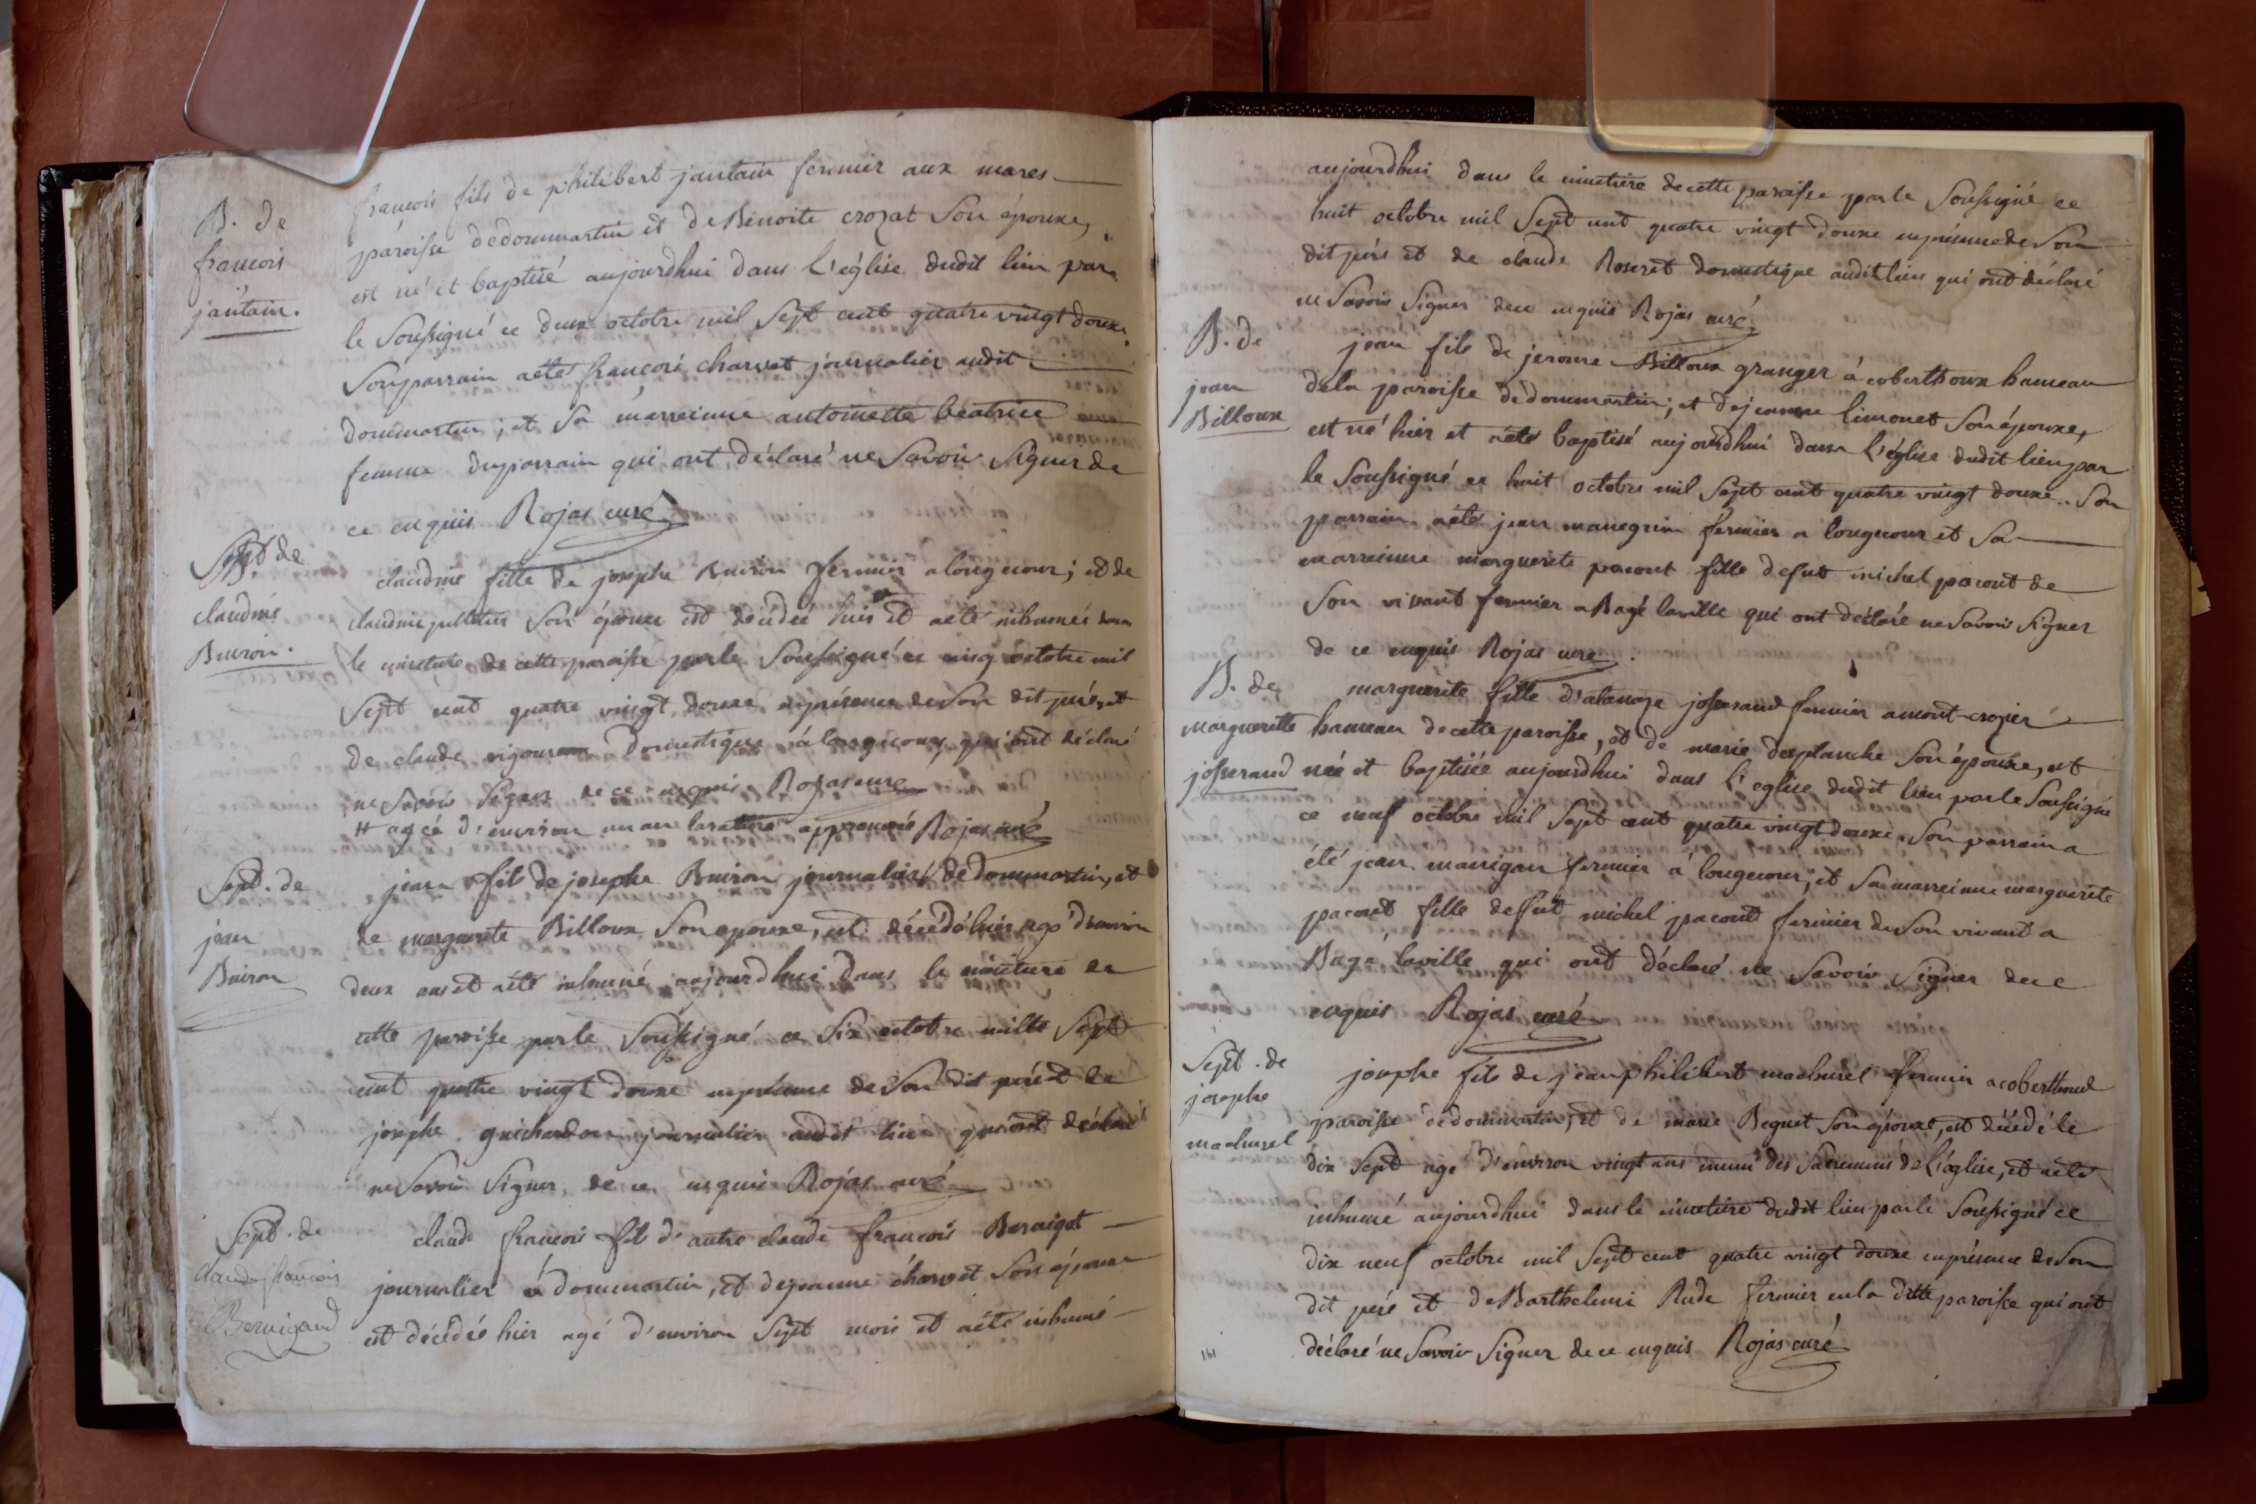 B. de
francois
jantain.
francois fils de philibert jantain fermier aux mares
paroisse dedommartin et de Benoite crozat son épouse,
est né et baptisé aujourdhui dans l'église dudit lieu par
le soussigné ce deux octobre mil sept cent quatre vingt douze.
son parrain aété françois charvet journalier audit
dommartin; et sa marreinne antoinette béatrice
femme duparrain qui ont déclaré ne savoir signer de
ce enquis Rojas curé
Sept de
claudine
Buiron.
claudine fille de josephe Buiron fermier a longecour; et de
claudine son épouse est décédée hier et aété inhumée dans
le cimetiere de cette paroisse parle soussigné ce cinq octobre mil
sept cent quatre vingt douze enprésence deson dit père, et
de claude vigoureux domestique à longecour, qui ont déclaré
ne savoir signer de ce enquis Rojas curé
# agée d'environ un an larature approuvée Rojas curé
Sept. de
jean
Buiron
jean fils de josephe Buiron journalier de dommartin, et
de marguerite Billoux son epouse, est décédé hier agé d'environ
deux ans et aété inhumé aujourdhui dans le cimetiere de
cette paroisse parle soussigné ce six octobre mille sept
cent quatre vingt douze enprésence de son dit père et de
josephe guichardon journalier audit lieu qui ont déclaré
ne savoir signer de ce enquis Rojas curé
Sept. de
claude francois
Bernigaud
claude francois fils d'autre claude francois Bernigot
journalier à dommartin, et dejeanne charvet son épouse
est décédé hier agé d'environ sept mois et aété inhumé
aujourdhui dans le cimetiere de cette paroisse parle soussigné ce
huit octobre mil sept cent quatre vingt douze enprésence de son
dit père et de claude Roseret domestique audit lieu qui ont déclaré
ne savoir signer de ce enquis Rojas curé
B. de
jean
Billoux
jean fils de jerome Billoux granger à coberthoux hameau
dela paroisse dedommartin; et dejeanne limonet son épouse,
est né hier et aété baptisé aujourdhui dans l'église dudit lieu par
le soussigné ce huit octobre mil sept cent quatre vingt douze. son
parrain aété jean manegrin fermier a longecour et sa
marreinne marguerite pacout fille defut michel pacout de
son vivant fermier a Bagé laville qui ont déclaré ne savoir signer
de ce enquis Rojas curé.
B. de
marguerite
josserand
marguerite fille d'atanaze josserand fermier amont-crozier
hameau de cette paroisse, et de marie desplanche son épouse, est
née et baptisée aujourdhui dans l'eglise dudit lieu parle soussigné
ce neuf octobre mil sept cent quatre vingt douze. son parrain a
été jean manigan fermier à longecour; et sa marreinne marguerite
pacout fille deffut michel pacout fermier deson vivant a
Bagé laville qui ont déclaré ne savoir signer de ce
enquis Rojas curé
Sept. de
josephe
machurel
josephe fils de jeanphilibert machurel fermier acoberthoud
paroisse dedommartin, et de marie Beguet son épouse, est décédé le
dix sept agé d'environ vingt ans muni des sacremens de l'église, et aété
inhumé aujourdhui dans le cimetiere dudit lieu parle soussigné ce
dix neuf octobre mil sept cent quatre vingt douze enprésence de son
dit père et deBarthelemi Rude fermier enla ditte paroisse qui ont
déclaré ne savoir signer de ce enquis Rojas curé
161